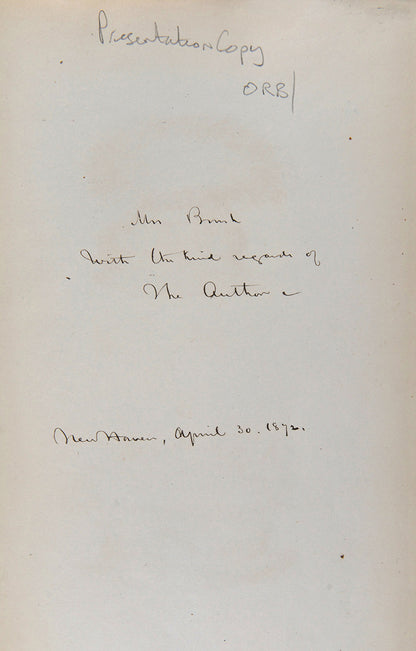 Presentation Copy
ORB/
Mrs
With the kind regards of
The Author
New Haven, April 30. 1872.